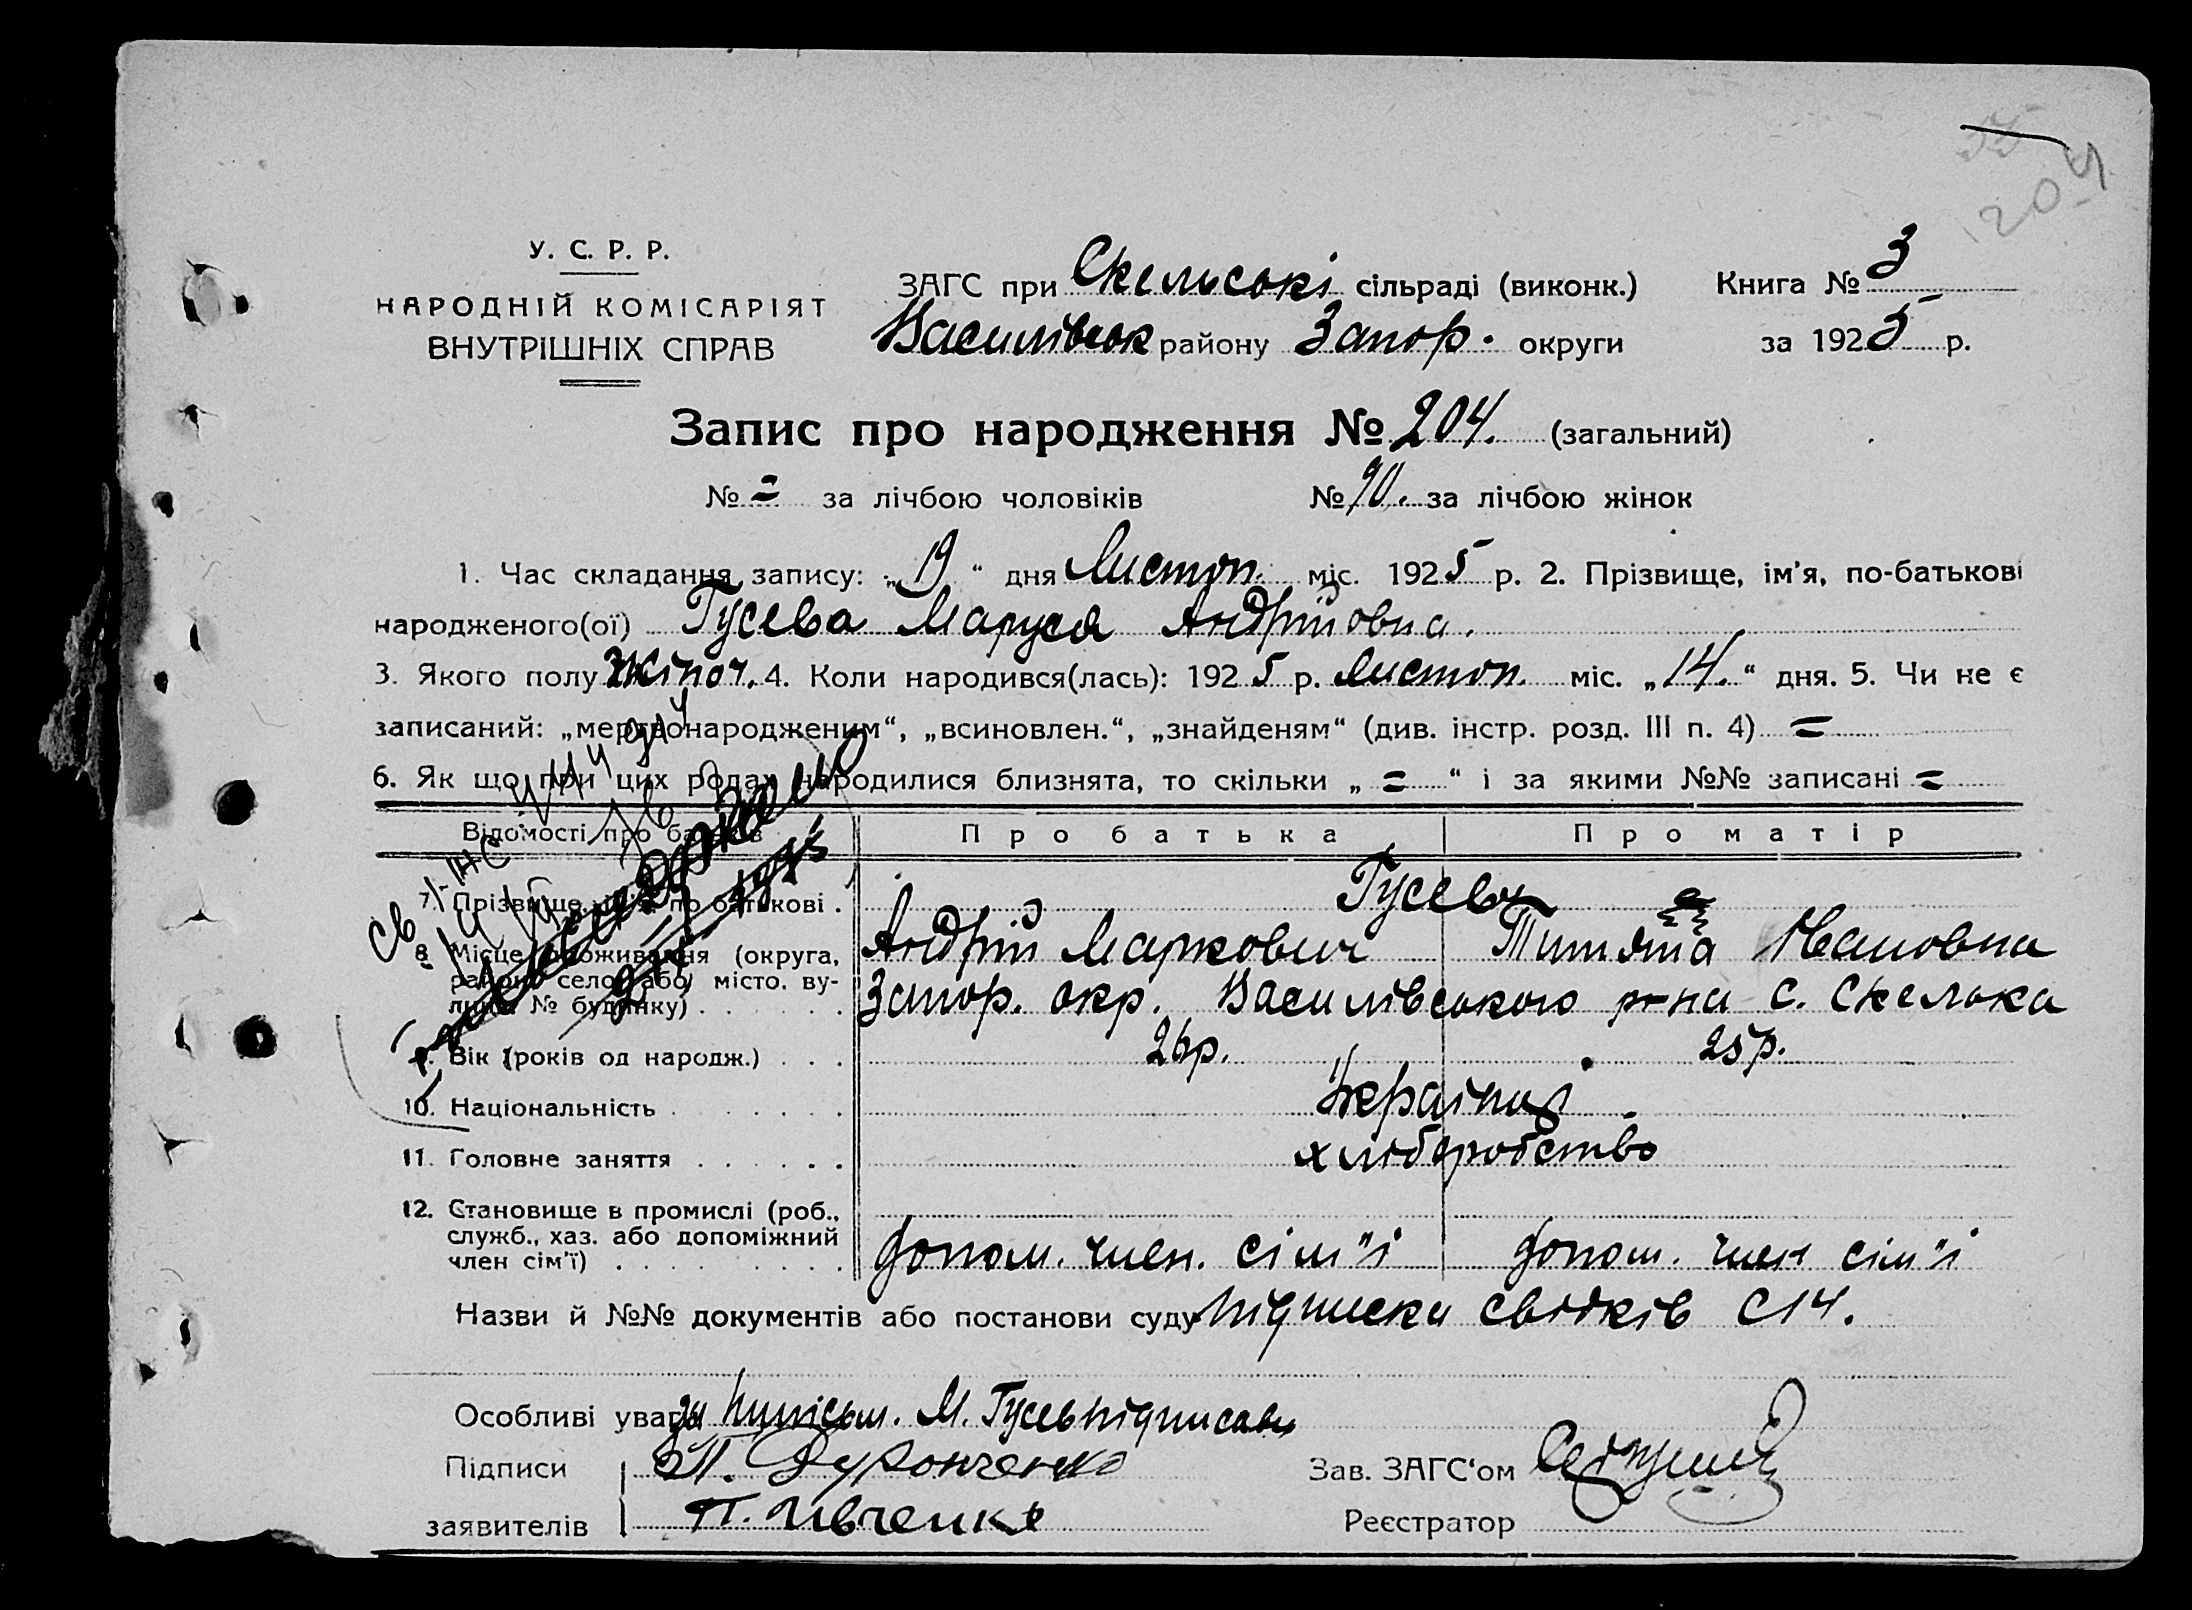 204
У. С. Р. Р.
НАРОДНІЙ КОМІСАРІЯТ
ВНУТРІШНІХ СПРАВ
ЗАГС при Скельські сільраді (виконк.) Книга № 3
Василівськ району Запор. округи за 1925 р.
Запис про народження № 204. (загальний)
№ = за лічбою чоловіків № 90. за лічбою жінок
1. Час складання запису: „19“ дня Листоп. міс. 1925 р. 2. Прізвище, ім'я, по-батькові
народженого(ої) Гусева Маруся Андрійовна.
3. Якого полу жіноч. 4. Коли народився(лась): 1925 р. Листоп. міс. „14.“ дня. 5. Чи не є
записаний: „мертвонародженим“, „всиновлен.“, „знайденям“ (див. інстр. розд. III п. 4) =
6. Як що при цих родах народилися близнята, то скільки „ = “ і за якими №№ записані =
Відомості про батьків Про батька Про матір
7. Прізвище, ім'я, по батькові . Гусев
Андрій Маркович Титяна Ивановна
8. Місце проживання (округа,
район, село або місто, ву-
лиця № будинку) . . . . . . Запор. окр. Василівського р-на с. Скелька
9. Вік (років од народж.) . . . 26р. 25р.
10. Національність . . . . . . Україн
11. Головне заняття . . . . . . хліборобство
12. Становище в промислі (роб.,
служб., хаз. або допоміжний
член сім'ї) . . . . . . . . . допом. член. сім"ї допом. член сім"ї
Назви й №№ документів або постанови суду підписка свідків С14.
Особливі уваги за М. Гусев підписав
Підписи П.
заявителів П. Івченко
Зав. ЗАГС'ом
Реєстратор